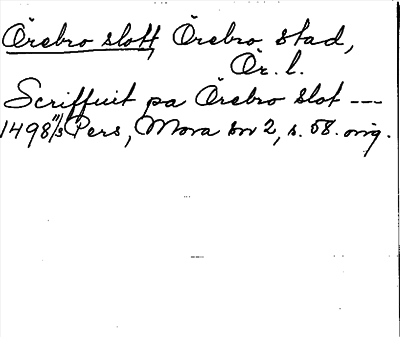 Örebro slott, Örebro stad,
Ör. l.
Scriffuit pa Örebro slot ---
1498 11/3 Pers, Mora sn 2, s. 58. orig.